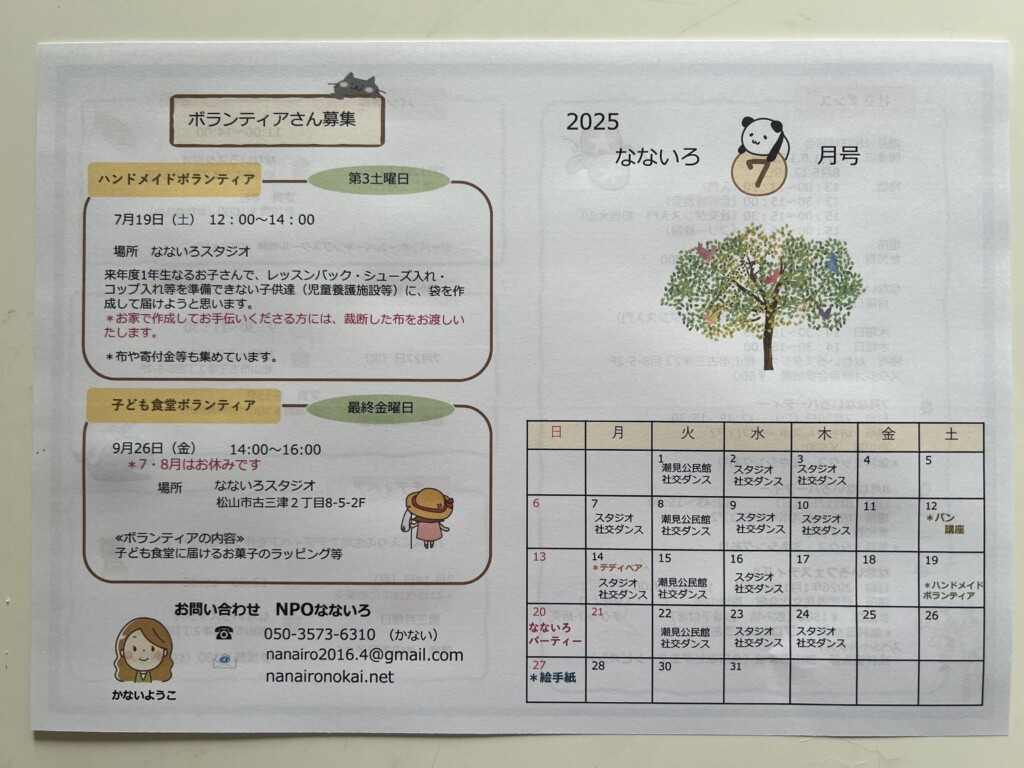 ボランティアさん募集
ハンドメイドボランティア
第3土曜日
7月19日（土） 12：00～14：00
場所 なないろスタジオ
来年度1年生なるお子さんで、レッスンバック・シューズ入れ・
コップ入れ等を準備できない子供達（児童養護施設等）に、袋を作
成して届けようと思います。
＊お家で作成してお手伝いくださる方には、裁断した布をお渡しい
たします。
＊布や寄付金等も集めています。
子ども食堂ボランティア
最終金曜日
9月26日（金） 14:00～16:00
＊7・8月はお休みです
場所 なないろスタジオ
松山市古三津２丁目8-5-2F
≪ボランティアの内容≫
子ども食堂に届けるお菓子のラッピング等
お問い合わせ NPOなないろ
050-3573-6310 （かない）
nanairo2016.4@gmail.com
nanaironokai.net
かないようこ
2025
なないろ 7 月号
日 月 火 水 木 金 土
1 2 3 4 5
潮見公民館 スタジオ スタジオ
社交ダンス 社交ダンス 社交ダンス
6 7 8 9 10 11 12
スタジオ 潮見公民館 スタジオ スタジオ ＊パン
社交ダンス 社交ダンス 社交ダンス 社交ダンス 講座
13 14 15 16 17 18 19
＊テディベア
スタジオ 潮見公民館 スタジオ ＊ハンドメイド
社交ダンス 社交ダンス 社交ダンス ボランティア
20 21 22 23 24 25 26
なないろ 潮見公民館 スタジオ スタジオ
パーティー 社交ダンス 社交ダンス 社交ダンス
27 28 30 30 31
＊絵手紙